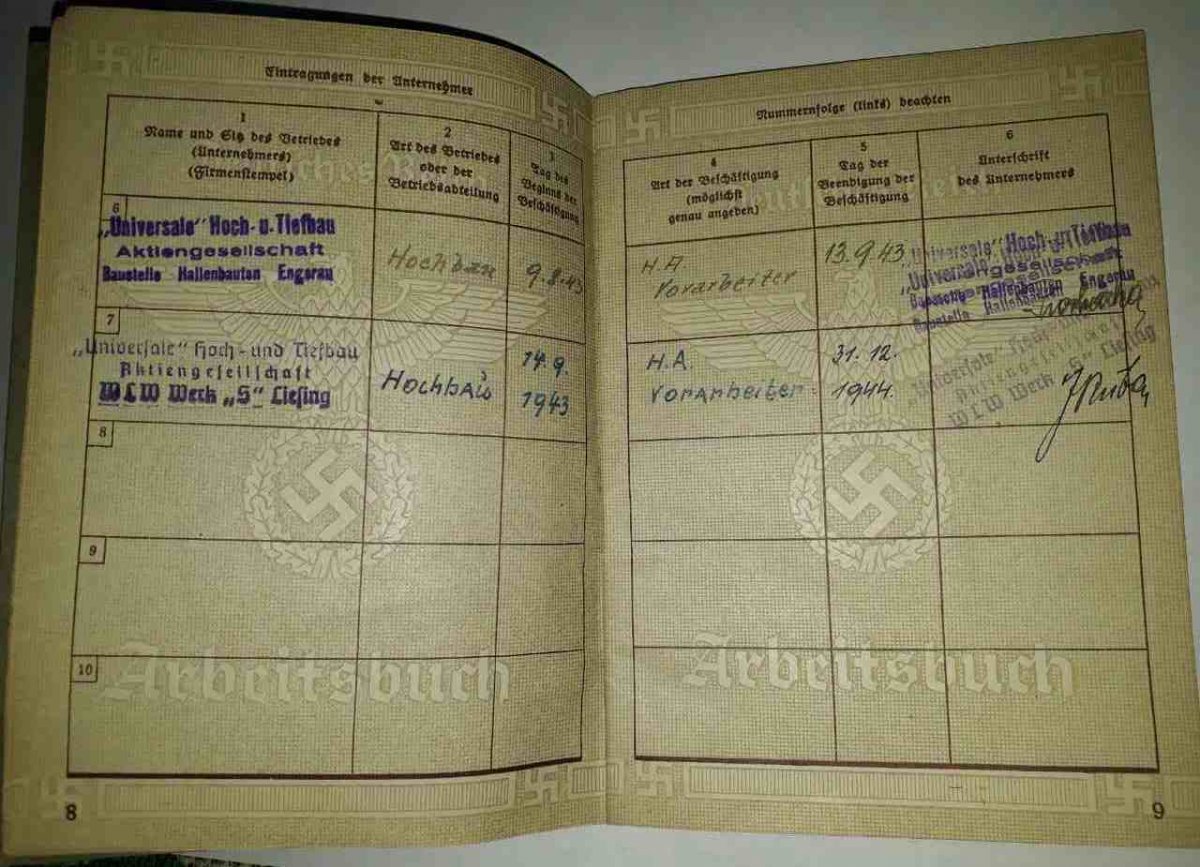 Eintragungen der Unternehmer
1
Name und Sitz des Betriebes
(Unternehmers)
(Firmenstempel)
2
Art des Betriebes
oder der
Betriebsabteilung
3
Tag des
Beginns der
Beschäftigung
6
„Universale" Hoch- u. Tiefbau
Aktiengesellschaft
Baustelle Hallenbauten Engerau
Hochbau
9.8.43
7
„Universale" Hoch- und Tiefbau
Aktiengesellschaft
WLW Werk „S" Liesing
Hochbau
14.9.
1943
8
9
10
Arbeitsbuch
8
Nummernfolge (links) beachten
4
Art der Beschäftigung
(möglichst
genau angeben)
5
Tag der
Beendigung der
Beschäftigung
6
Unterschrift
des Unternehmers
H.A.
Vorarbeiter
13.9.43
„Universale" Hoch- u. Tiefbau
Aktiengesellschaft
Baustelle Hallenbauten Engerau
H.A.
Vorarbeiter
31.12.
1944.
„Universale" Hoch- und Tiefbau
Aktiengesellschaft
WLW Werk „S" Liesing
Arbeitsbuch
9